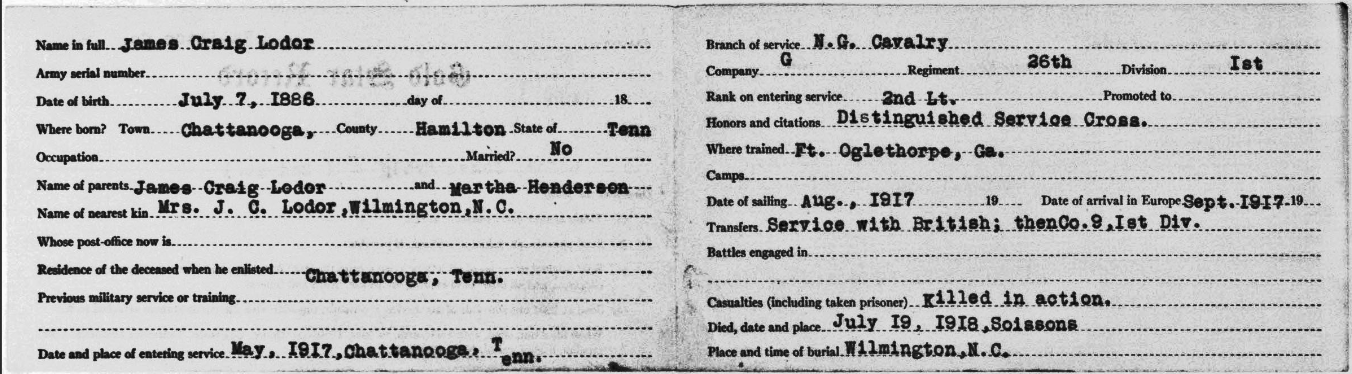 Name in full James Craig Lodor
Army serial number
Date of birth July 7, 1886 day of 18
Where born? Town Chattanooga, County Hamilton State of Tenn
Occupation Married? No
Name of parents James Craig Lodor and Martha Henderson
Name of nearest kin Mrs. J. C. Lodor,Wilmington,N.C.
Whose post-office now is
Residence of the deceased when he enlisted Chattanooga, Tenn.
Previous military service or training
Date and place of entering service May, 1917,Chattanooga, Tenn.
Branch of service N.G. Cavalry
Company G Regiment 26th Division Ist
Rank on entering service 2nd Lt. Promoted to
Honors and citations Distinguished Service Cross.
Where trained Ft. Oglethorpe, Ga.
Camps
Date of sailing Aug., 1917 19 Date of arrival in Europe Sept. 1917 19
Transfers Service with British; thenCo.9,Ist Div.
Battles engaged in
Casualties (including taken prisoner) Killed in action.
Died, date and place July 19, 1918,Soissons
Place and time of burial Wilmington,N.C.
Gold Star Record